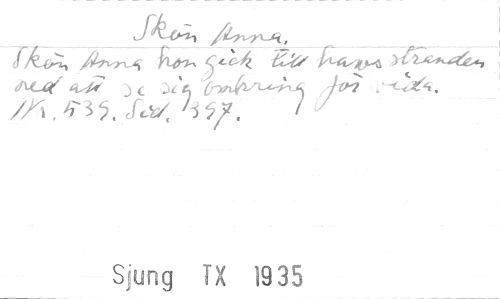 Skön Anna.
Skön Anna hon gick till hafvsstranden
ned att se sig omkring för vida.
Nr. 539. Sid. 397.
Sjung TX 1935